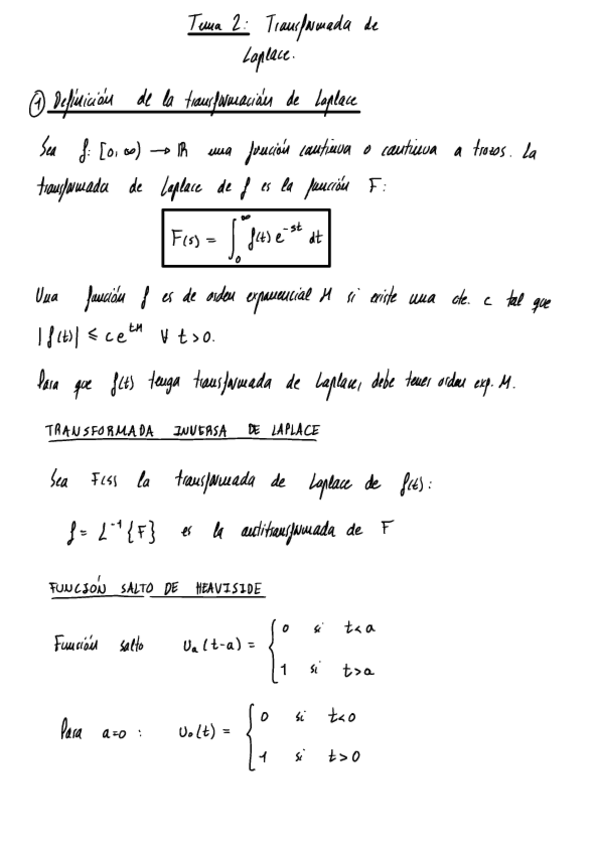 Tema 2: Transformada de
Laplace.
① Definición de la transformación de Laplace
Sea f: [0, ∞) → ℝ una función continua o continua a trozos. La
transformada de Laplace de f es la función F:
F(s) = ∫₀^∞ f(t) e^{-st} dt
Una función f es de orden exponencial M si existe una cte. c tal que
|f(t)| ≤ c e^{tM} ∀ t>0.
Para que f(t) tenga transformada de Laplace, debe tener orden exp. M.
TRANSFORMADA INVERSA DE LAPLACE
Sea F(s) la transformada de Laplace de f(t):
f = L^{-1}{F} es la antitransformada de F
FUNCIÓN SALTO DE HEAVISIDE
Función salto Ua(t-a) = { 0 si t<a
1 si t>a
Para a=0: U₀(t) = { 0 si t<0
1 si t>0